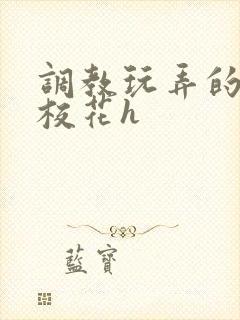 調教玩弄的
校花h
藍寶